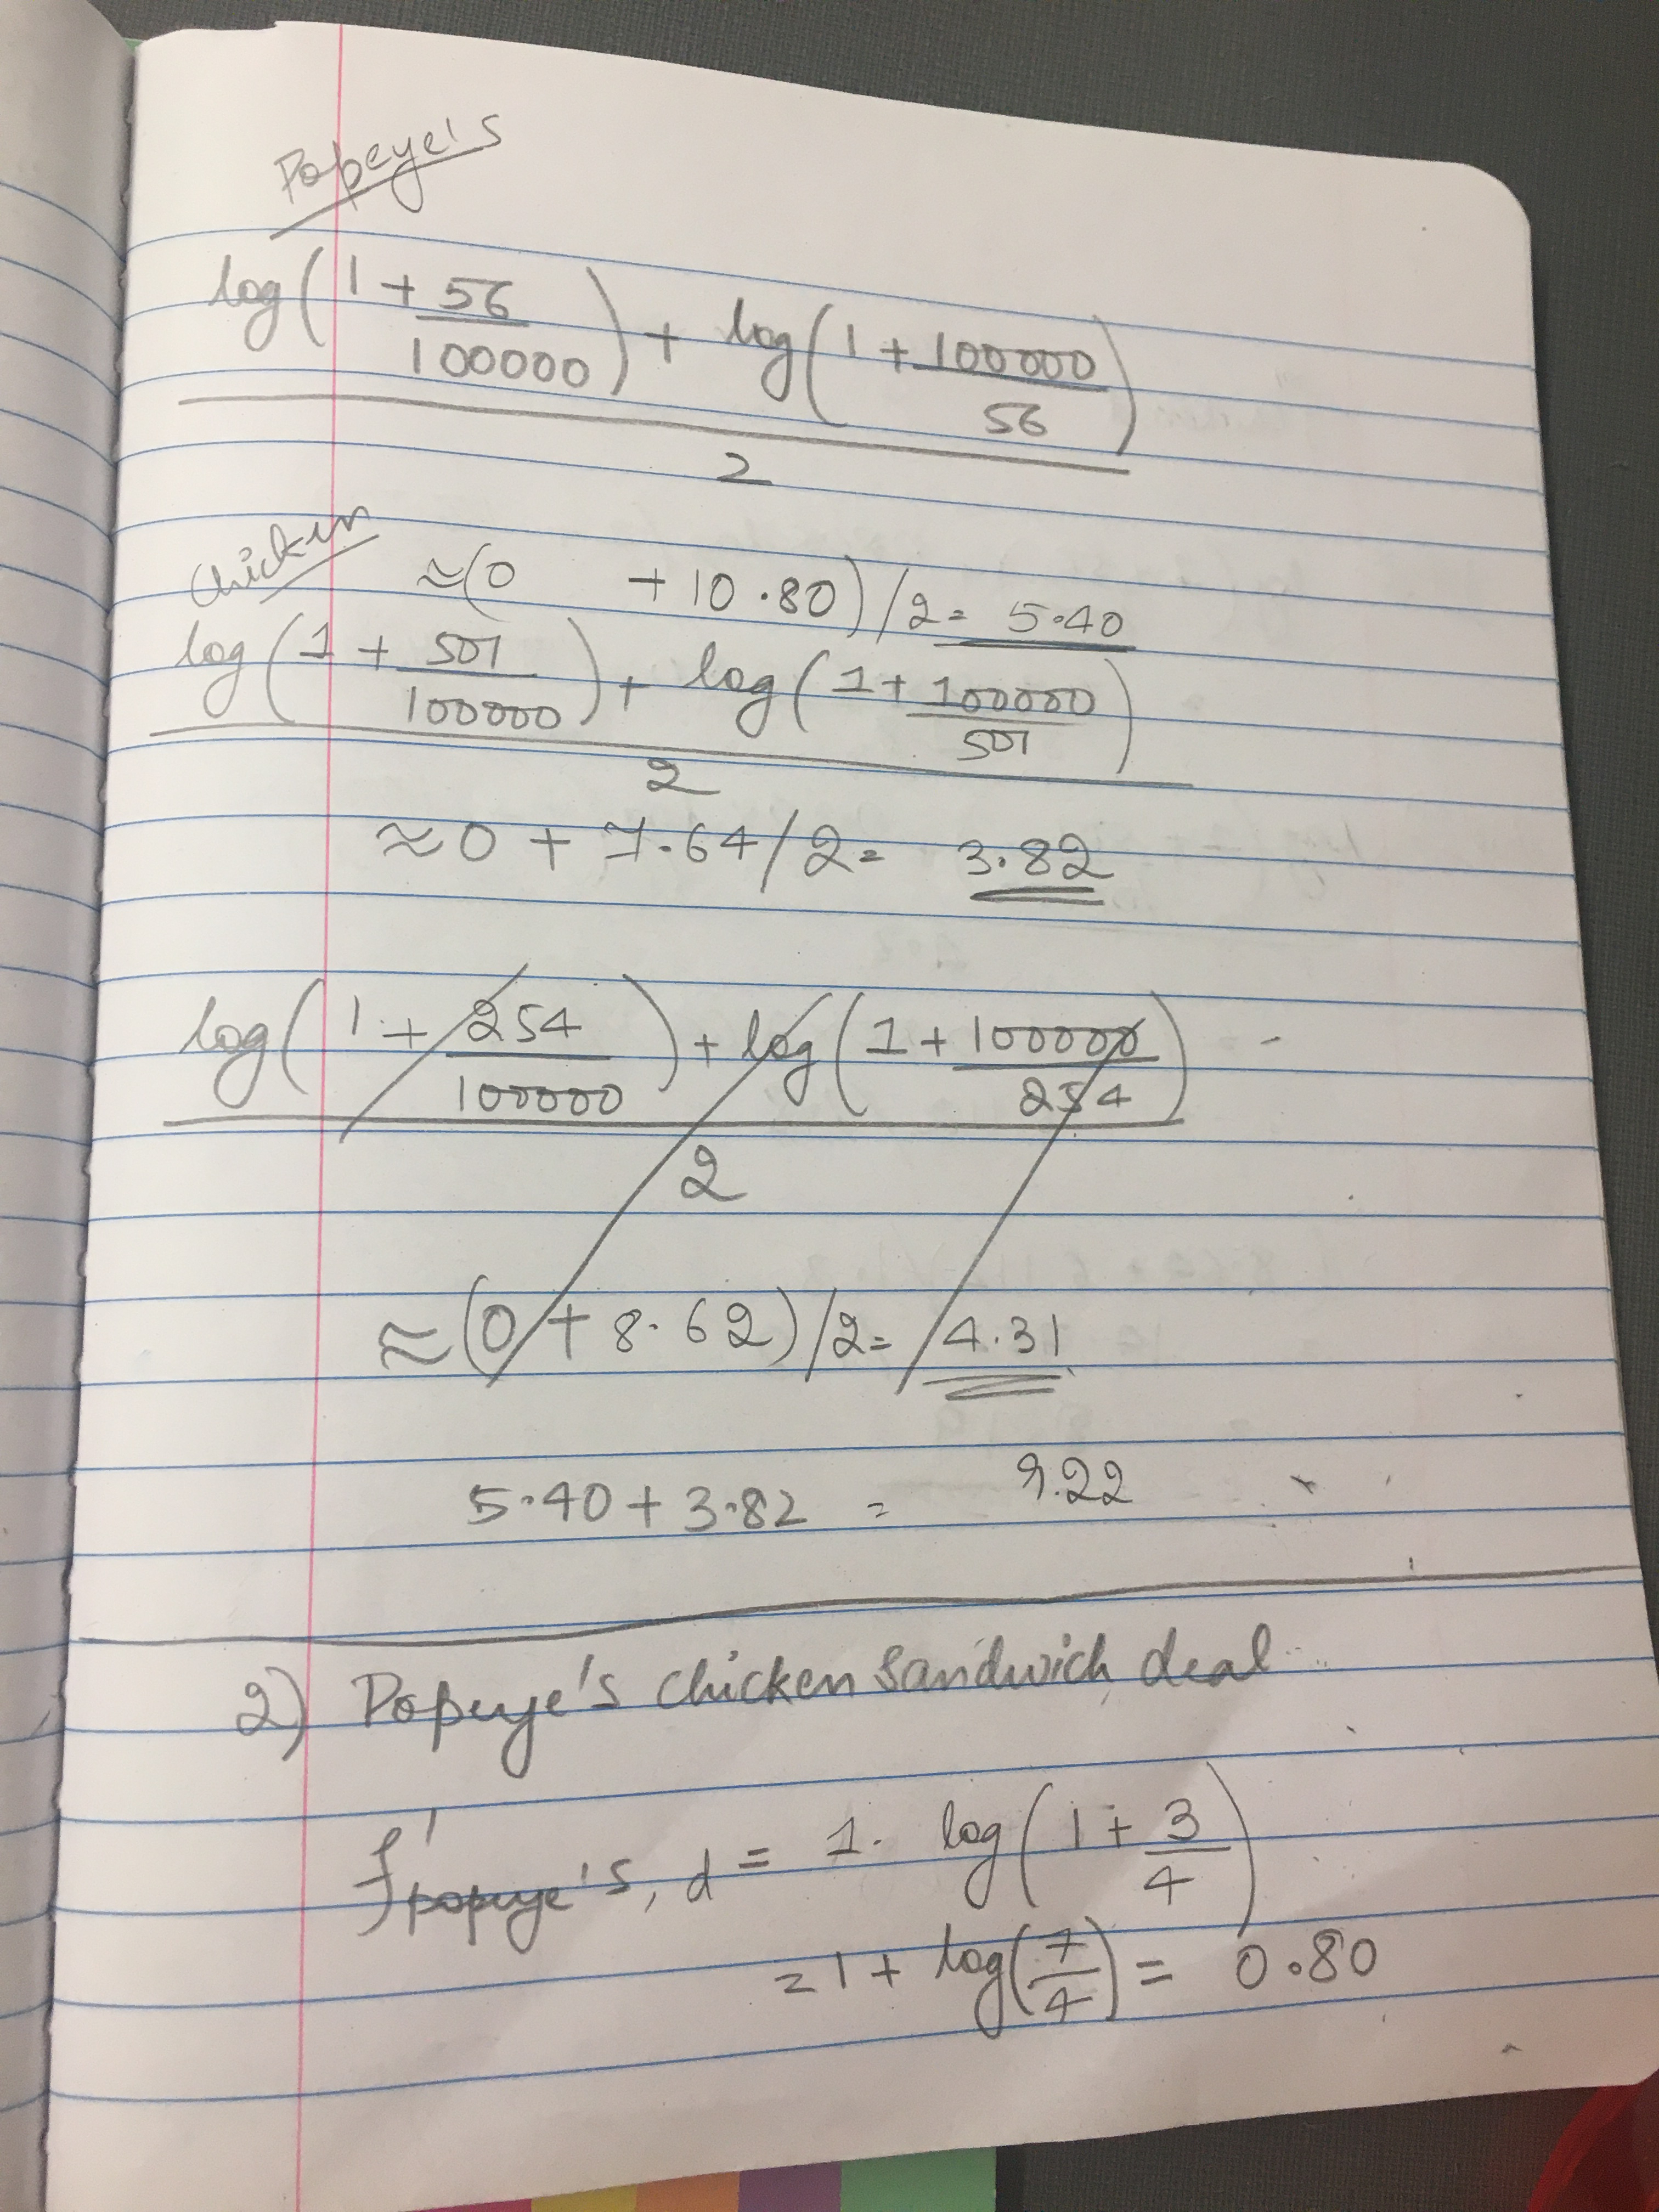 Popeye's
log(1 + 56/100000) + log(1 + 100000/56)
2
Chicken
≈(0 + 10.80)/2 = 5.40
log(1 + 501/100000) + log(1 + 100000/501)
2
≈ 0 + 7.64/2 = 3.82
log(1 + 254/100000) + log(1 + 100000/254)
2
≈ (0 + 8.62)/2 = 4.31
5.40 + 3.82 = 9.22
2) Popeye's chicken sandwich deal
f'popeye's, d = 1. log(1 + 3/4)
= 1 + log(7/4) = 0.80